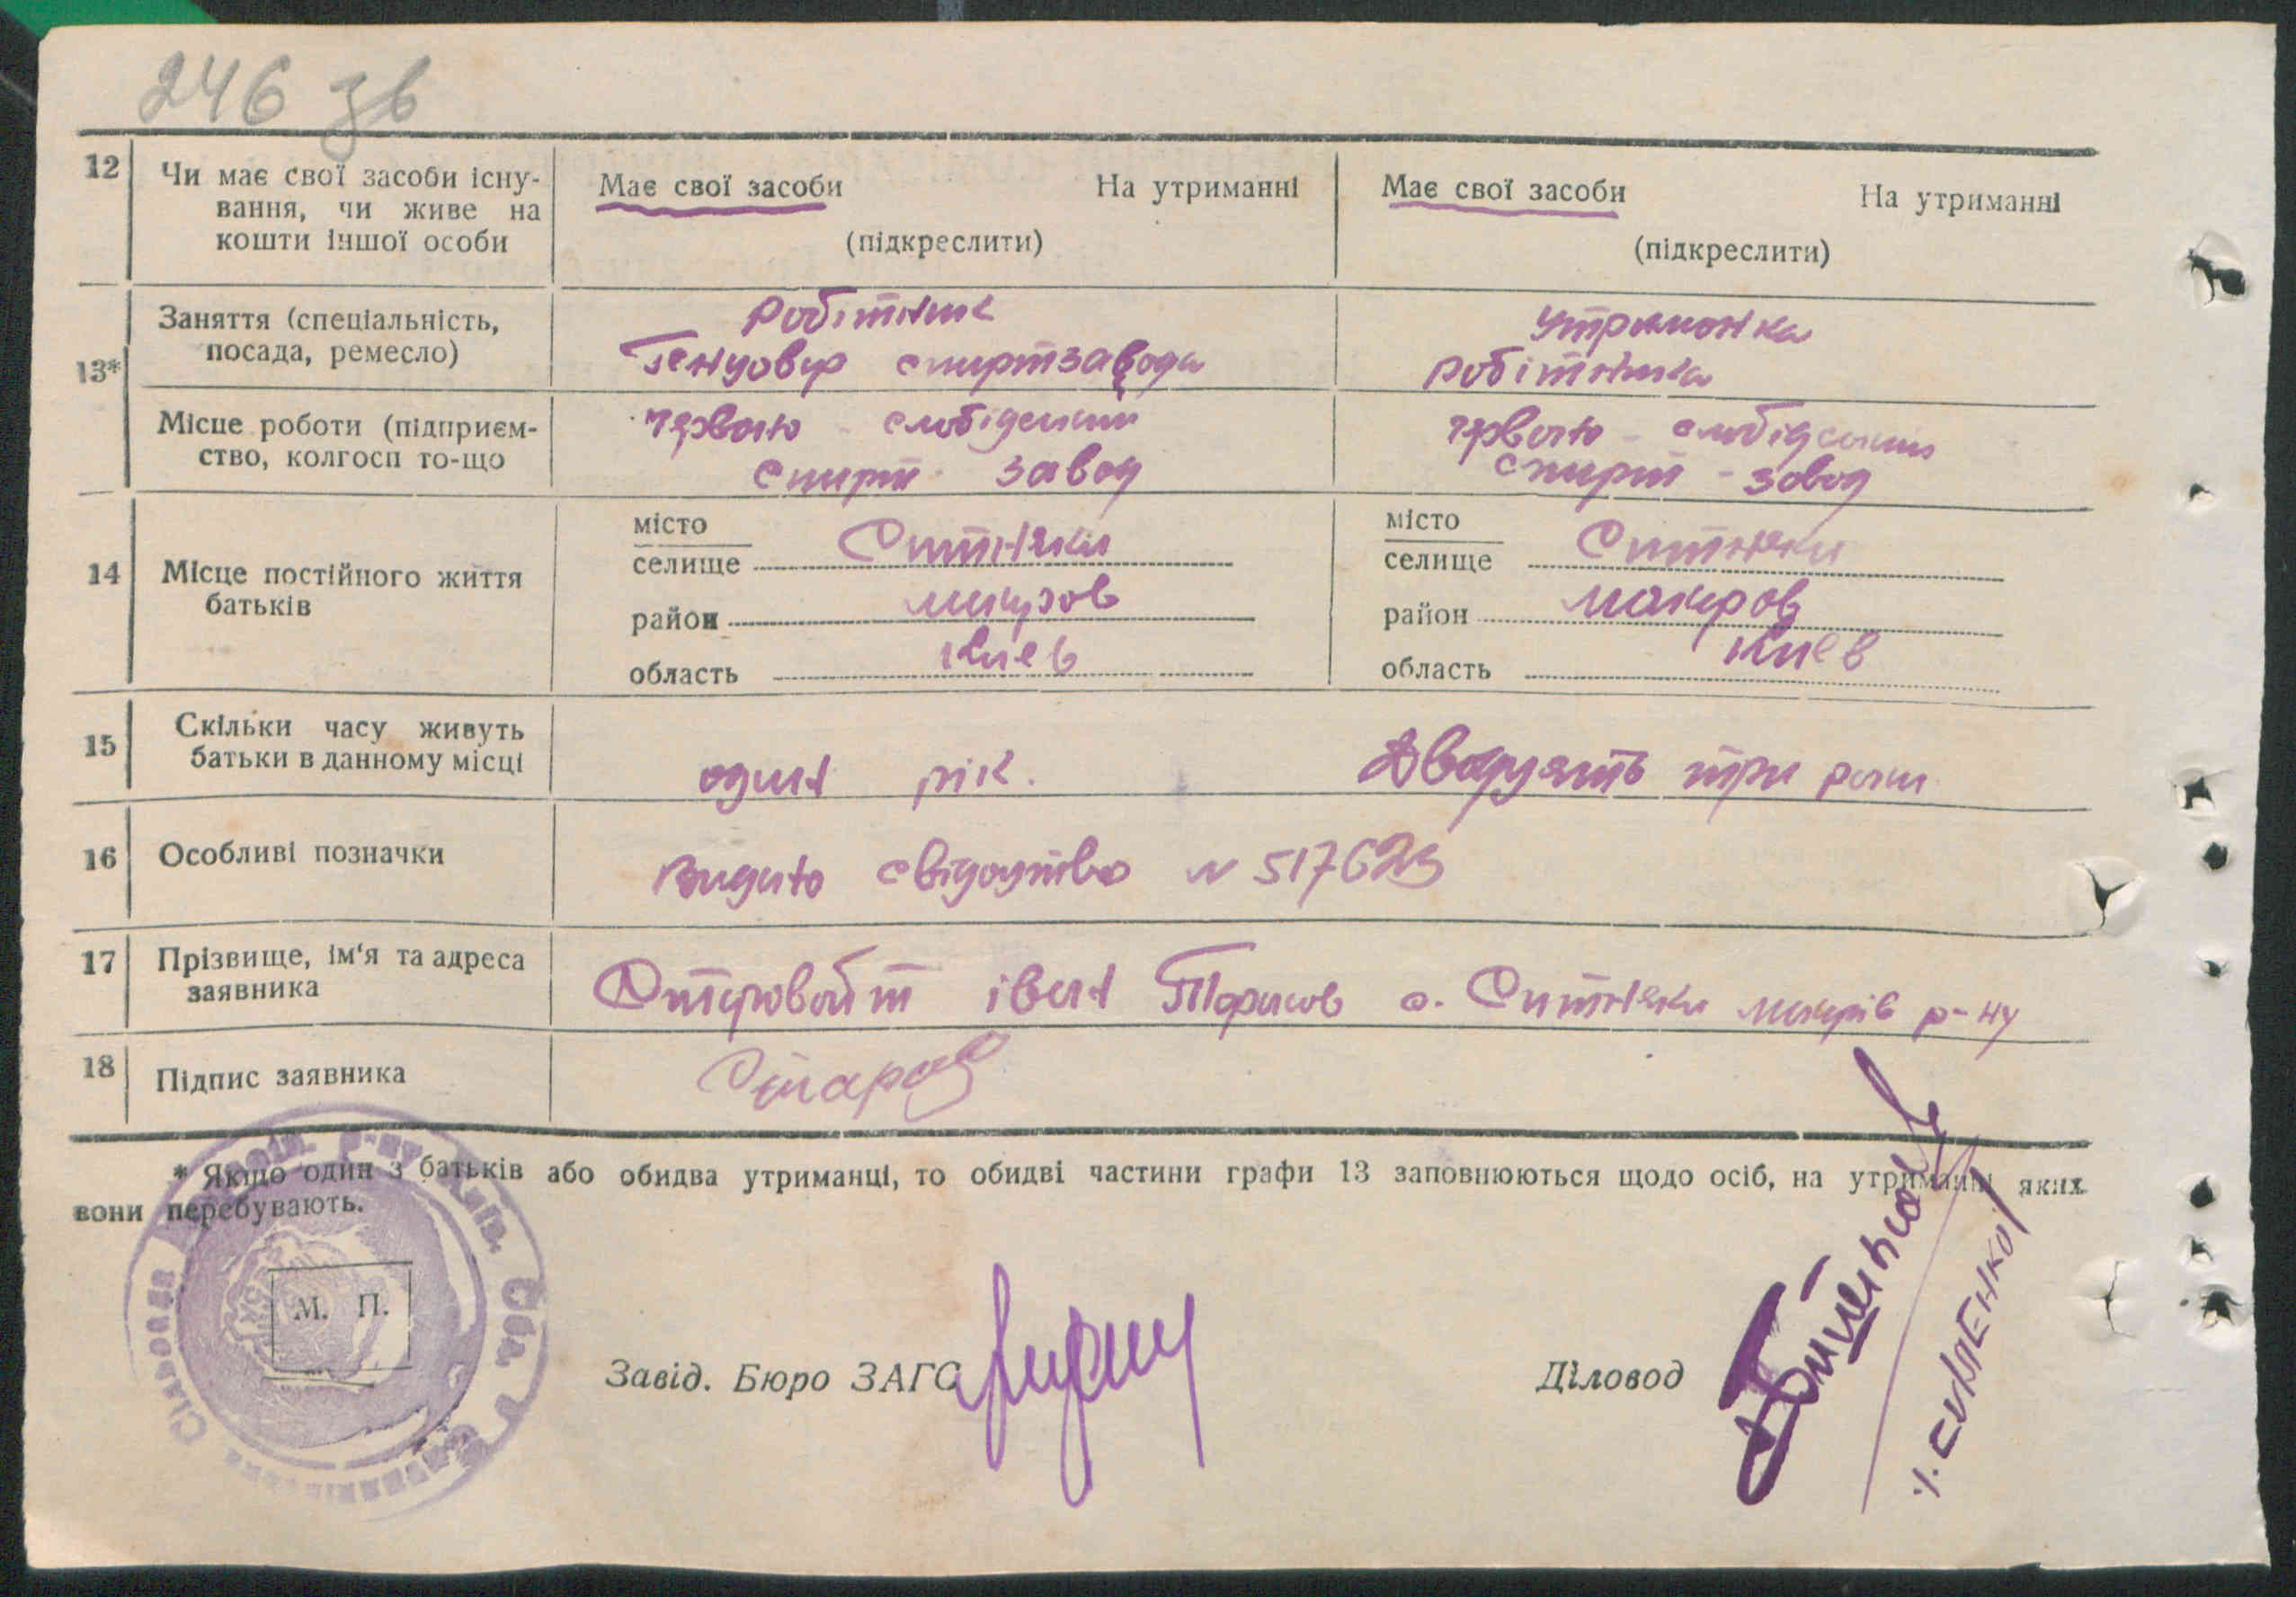 246 зв
12 Чи має свої засоби існу-
вання, чи живе на
кошти іншої особи
Має свої засоби На утриманні
(підкреслити)
Має свої засоби На утриманні
(підкреслити)
13*
Заняття (спеціальність,
посада, ремесло)
робітник
спиртзавода
утриманка
робітника
Місце роботи (підприєм-
ство, колгосп то-що
червоно - слобідський
спирт завод
червоно - слобідський
спирт - завод
14 Місце постійного життя
батьків
місто
селище Ситняки
район макаров
область Киев
місто
селище Ситняки
район макаров
область Киев
15 Скільки часу живуть
батьки в данному місці
один рік.
Двадцять три роки
16 Особливі позначки
видано свідоцтво N 517623
17 Прізвище, ім'я та адреса
заявника
іван с. Ситняки макарів р-ну
18 Підпис заявника
* Якщо один з батьків або обидва утриманці, то обидві частини графи 13 заповнюються щодо осіб, на утриманні яких
вони перебувають.
М. П.
Завід. Бюро ЗАГС
Діловод